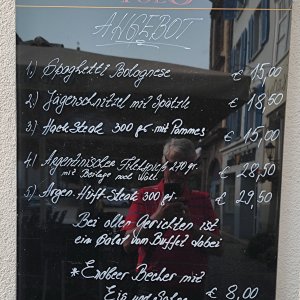 ANGEBOT
1.) Spaghetti Bolognese € 15,00
2.) Jägerschnitzel mit Spätzle € 18,50
3.) Hack-Steak 300 gr. mit Pommes € 15,00
4.) Argentinisches 270 gr. € 28,50
mit Beilage nach Wahl
5.) Argen. Hüft-Steak 300 gr. € 29,50
Bei allen Gerichten ist
ein Salat vom Buffet dabei
* Becher mit
Eis und € 8,00